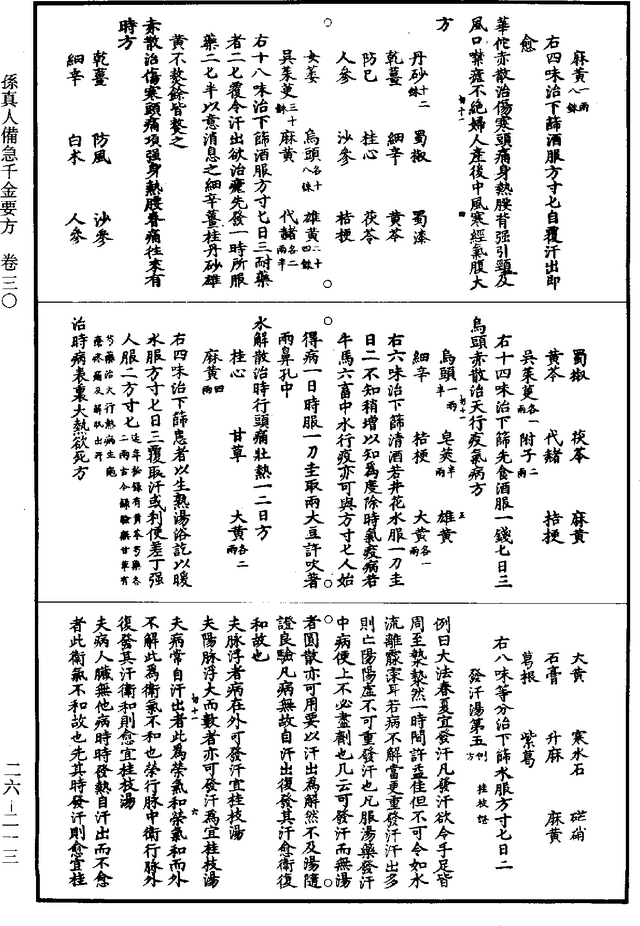 麻黄一兩八銖
右四味治下篩酒服方寸匕自覆汗出即
愈
華佗赤散治傷寒頭痛身熱腰背强引頸及
風口噤瘧不絶婦人產後中風寒經氣腹大
方
丹砂十二銖 蜀椒 蜀漆
乾薑 細辛 黄芩
防巳 桂心 茯苓
人參 沙參 桔梗
女萎 烏頭各十八銖 雄黄二十四銖
吳茱萸 麻黄 代赭各二兩半
右十八味治下篩酒服方寸匕日三耐藥
者二匕覆令汗出欲治瘧先發一時所服
藥二匕半以意消息之細辛薑桂丹砂雄
黄不熬餘皆熬之
赤散治傷寒頭痛項强身熱腰脊痛往來有
時方
乾薑 防風 沙參
細辛 白术 人參
蜀椒 茯苓 麻黄
黄芩 代赭 桔梗
吳茱萸各一兩 附子二兩
右十四味治下篩先食酒服一錢匕日三
烏頭赤散治天行疫氣病方
烏頭一兩半 皂莢半兩 雄黄
細辛 桔梗 大黄各一兩
右六味治下篩清酒若井花水服一刀圭
日二不知稍增以知為度除時氣疫病若
牛馬六畜中水行疫亦可與方寸匕人始
得病一日時服一刀圭取兩大豆許吹著
兩鼻孔中
水解散治時行頭痛壯熱一二日方
桂心 甘草 大黄各二兩
麻黄四兩
右四味治下篩患者以生熟湯浴訖以暖
水服方寸匕日三覆取汗或利便差丁强
人服二方寸匕
治時病表裏大熱欲死方
大黄 寒水石 硭硝
石膏 升麻 麻黄
葛根 紫葛
右八味等分治下篩水服方寸匕日二
發汗湯第五
例曰大法春夏宜發汗凡發汗欲令手足皆
周至漐漐然一時間許益佳但不可令如水
流離霡霂耳若病不解當更重發汗汗出多
則亡陽陽虛不可重發汗也凡服湯藥發汗
中病便上不必盡劑也凡云可發汗而無湯
者圓散亦可用要以汗出為解然不及湯隨
證良驗凡病無故自汗出復發其汗愈衛復
和故也
夫脉浮者病在外可發汗宜桂枝湯
夫陽脉浮大而數者亦可發汗為宜桂枝湯
夫病常自汗出者此為榮氣和榮氣和而外
不解此為衛氣不和也榮行脉中衛行脉外
復發其汗衛和則愈宜桂枝湯
夫病人臟無他病時時發熱自汗出而不愈
者此衛氣不和故也先其時發汗則愈宜桂
孫真人備急千金要方 卷三〇
二六—二一三